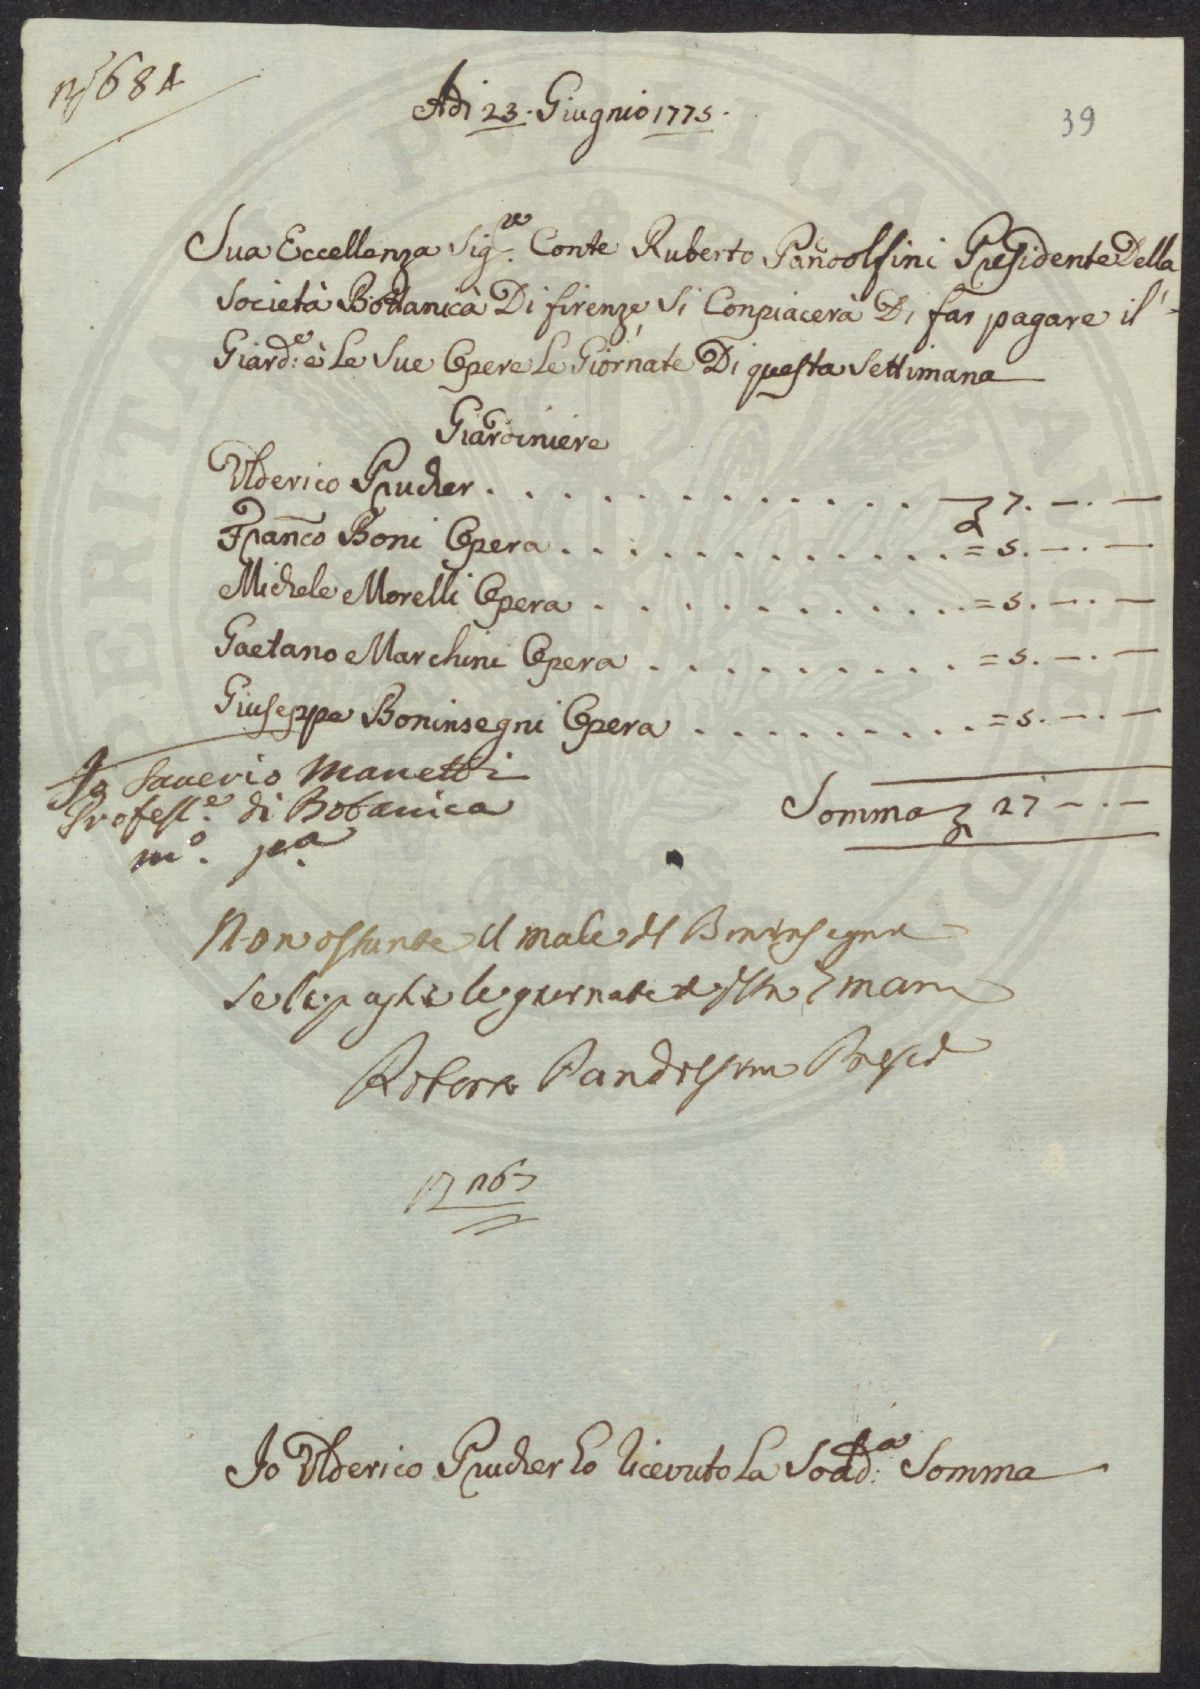 N° 684
Adi 23. Giugnio 1775.
39
Sua Eccellenza Sig.re Conte Ruberto Pandolfini Presidente Della
Società Bottanica Di firenze Si Conpiacerà Di far pagare il
Giard.e è Le Sue Opere Le Giornate Di questa Settimana
Giardiniere
Ulderico Prucher . . . . . . . . . . . . 7. — . —
Fran.co Boni Opera . . . . . . . . . . = 5. — . —
Michele Morelli Opera . . . . . . . . . . = 5. — . —
Gaetano Marchini Opera . . . . . . . . . = 5. — . —
Giuseppe Boninsegni Opera . . . . . . . . . = 5. — . —
Io Saverio Manetti
Profess.e di Botanica
m.o p.a
Somma 27 — . —
Non ostante il male del Boninsegni
se li paghi le giornate
Roberto Pandolfini Presid
Io Ulderico Prucher ho ricevuto La Sodd.a Somma
VERITATI PUBLICA